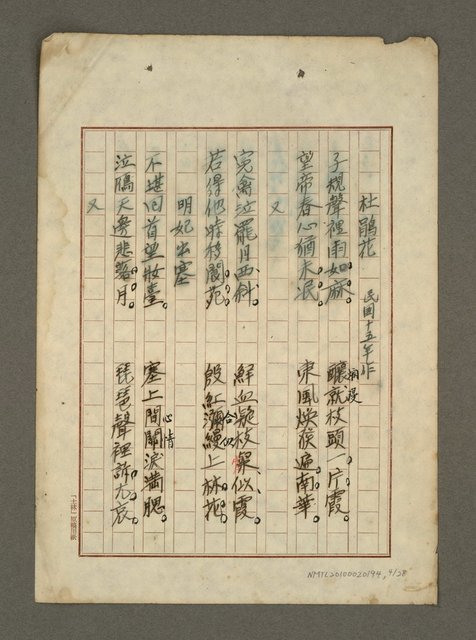 杜鵑花 民國十五年作
子規聲裡雨如麻。 釀就枝頭一片霞。
爛漫
望帝春心猶未泯。 東風煥發遍南華。
又
冤禽泣罷月西斜。 鮮血凝枝氣似霞。
若得他時移閬苑。 殷紅瀰縵上林花。
合似
明妃出塞
不堪回首望妝臺。 塞上間關淚滿腮。
心情
泣鴈天邊悲落月。 琵琶聲裡訴尤哀。
又
NMTL20100020194, 4/28